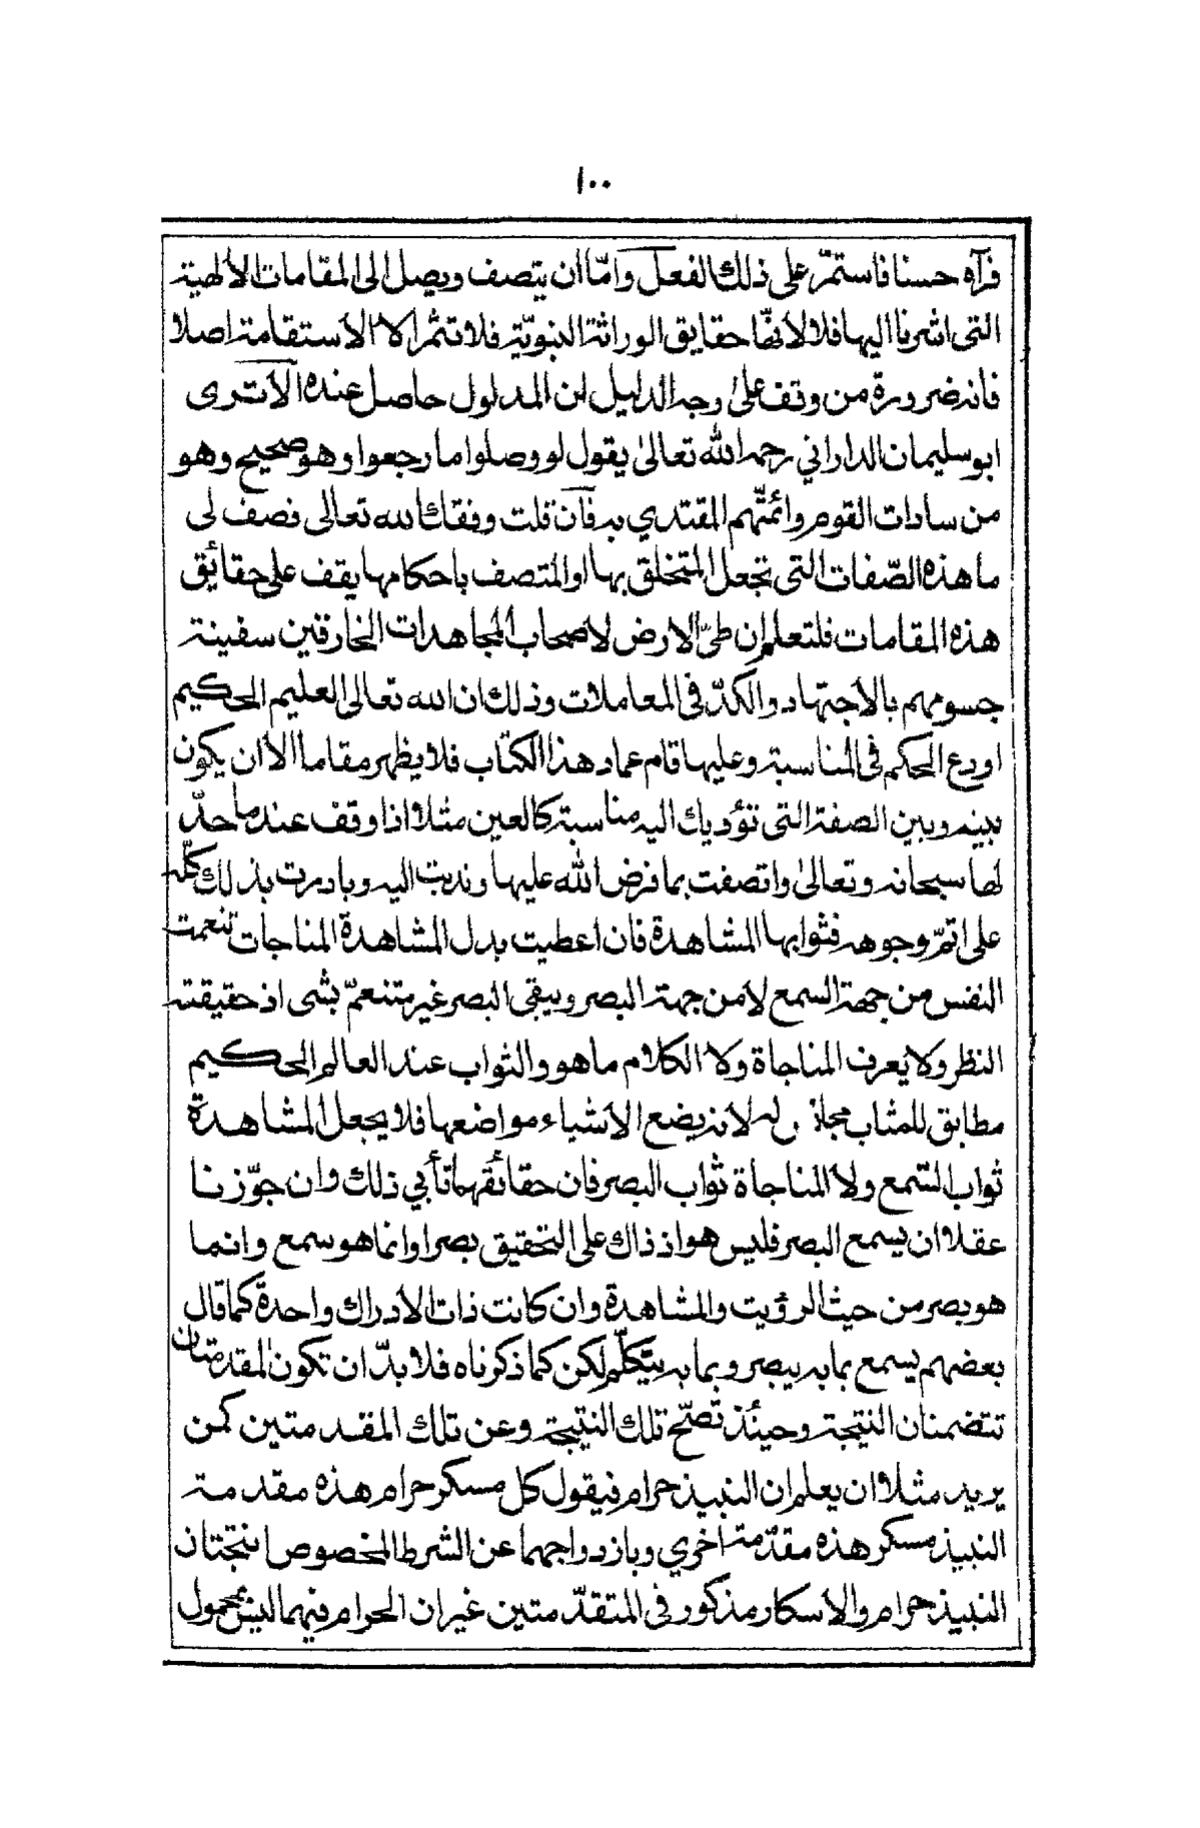 ١٠٠
فرآه حسنا فاستمرّ على ذلك الفعل وامّا ان يتصف ويصل الى المقامات الألهية
التى اشرنا اليها فلا لأنّها حقايق الوراثة النبويّة فلا تثمر الا الأستقامة اصلا
فانه ضرورة من وقف على وجه الدليل لن المدلول حاصل عنده الأترى
ابو سليمان الداراني رحمه الله تعالى يقول لو وصلوا ما رجعوا وهو صحيح وهو
من سادات القوم وائمّتهم المقتدي به فان قلت وفقك الله تعالى فصف لى
ما هذه الصّفات التى تجعل المتخلق بها او المتصف باحكامها يقف على حقائق
هذه المقامات فلتعلم ان طىّ الارض لأصحاب المجاهدات الخارقين سفينة
جسومهم بالأجتهاد والكدّ فى المعاملات وذلك ان الله تعالى العليم الحكيم
اودع الحكم فى المناسبة وعليها قام عماد هذا الكتاب فلا يظهر مقاما الأان يكون
بينه وبين الصفة التى تؤديك اليه مناسبة كالعين مثلا اذا وقف عند ما حدّ
لها سبحانه وتعالى واتصفت بما فرض الله عليها وندبت اليه وبادرت بذلك كلّه
على اتمّ وجوهه فثوابها المشاهدة فان اعطيت بدل المشاهدة المناجات تنعمت
النفس من جهة السمع لأمن جهة البصر ويبقى البصر غير متنعمّ بشى اذ حقيقته
النظر ولا يعرف المناجاة ولا الكلام ما هو والثواب عند العالم الحكيم
مطابق للمثاب مجاز له لأنه يضع الأشياء مواضعها فلا يجعل المشاهدة
ثواب السّمع ولا المناجاة ثواب البصر فان حقائقهما تأبي ذلك وان جوّزنا
عقلا ان يسمع البصر فليس هو اذ ذاك على التحقيق بصرا وانما هو سمع وانما
هو بصر من حيث الرؤيت والمشاهدة وان كانت ذات الأدراك واحدة كما قال
بعضهم يسمع بما به يبصر وبما به يتكلّم لكن كما ذكرناه فلا بدّ ان تكون المقدمتان
تتضمنان النتيجة وحينئذ تصحّ تلك النتيجة وعن تلك المقدمتين كمن
يريد مثلا ان يعلم ان النبيذ حرام فيقول كل مسكر حرام هذه مقدمة
النبيذ مسكر هذه مقدّمة اخري وبازدواجهما عن الشرط المخصوص انتجتان
النبيذ حرام والأسكار مذكور فى المتقدّمتين غير ان الحرام فيهما ليس محمول